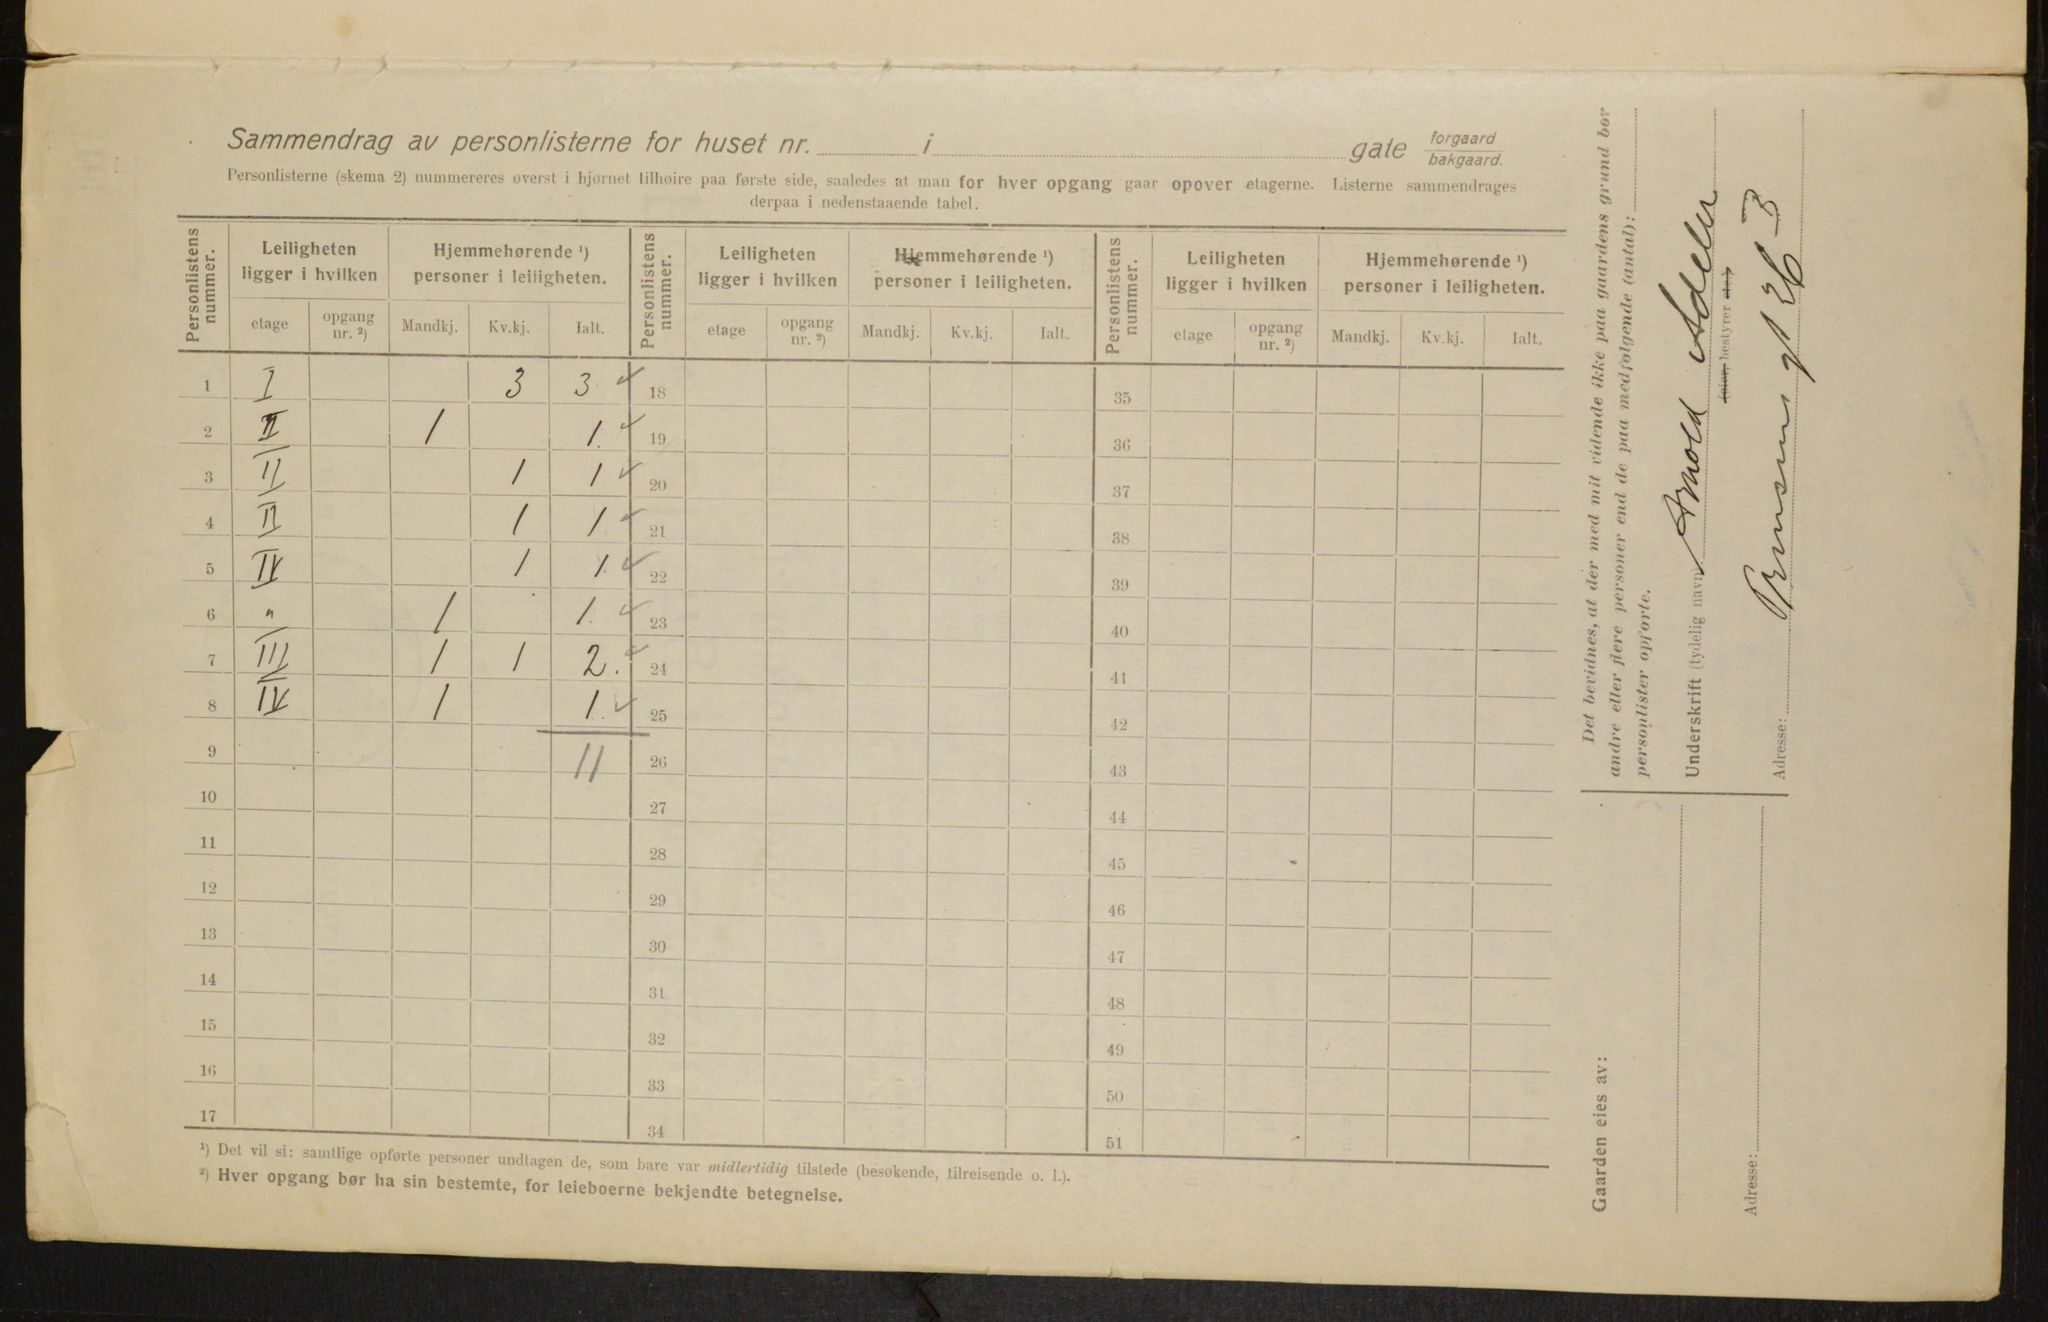 Sammendrag av personlisterne for huset nr. i gate forgaard bakgaard.
Personlisterne (skema 2) nummereres øverst i hjørnet tilhøire paa første side, saaledes at man for hver opgang gaar opover etagerne. Listerne sammendrages
derpaa i nedenstaaende tabel.
Personlistens nummer. Leiligheten ligger i hvilken Hjemmehørende ¹) personer i leiligheten. Personlistens nummer. Leiligheten ligger i hvilken Hjemmehørende ¹) personer i leiligheten. Personlistens nummer. Leiligheten ligger i hvilken Hjemmehørende ¹) personer i leiligheten.
etage opgang nr. ²) Mandkj. Kv.kj. Ialt. etage opgang nr. ²) Mandkj. Kv.kj. Ialt. etage opgang nr. ²) Mandkj. Kv.kj. Ialt.
1 I 3 3 18 35
2 II 1 1. 19 36
3 II 1 1 20 37
4 II 1 1 21 38
5 IV 1 1. 22 39
6 " 1 1. 23 40
7 III 1 1 2. 24 41
8 IV 1 1. 25 42
9 11 26 43
10 27 44
11 28 45
12 29 46
13 30 47
14 31 48
15 32 49
16 33 50
17 34 51
¹) Det vil si: samtlige opførte personer undtagen de, som bare var midlertidig tilstede (besøkende, tilreisende o. l.).
²) Hver opgang bør ha sin bestemte, for leieboerne bekjendte betegnelse.
Det bevidnes, at der med mit vidende ikke paa gaardens grund bor
andre eller flere personer end de paa medfølgende (antal):
personlister opførte.
Underskrift (tydelig navn) Arnold Adeler
(eier, bestyrer etc.)
Adresse:
Gaarden eies av:
Adresse: